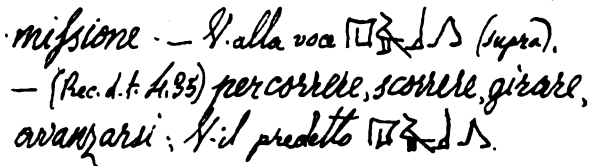 missione. — V. alla voce 𓉔𓅱𓃀𓂻 (supra).
— (Rec. d. t. 4.95) percorrere, scorrere, girare,
avanzarsi; V. il predetto